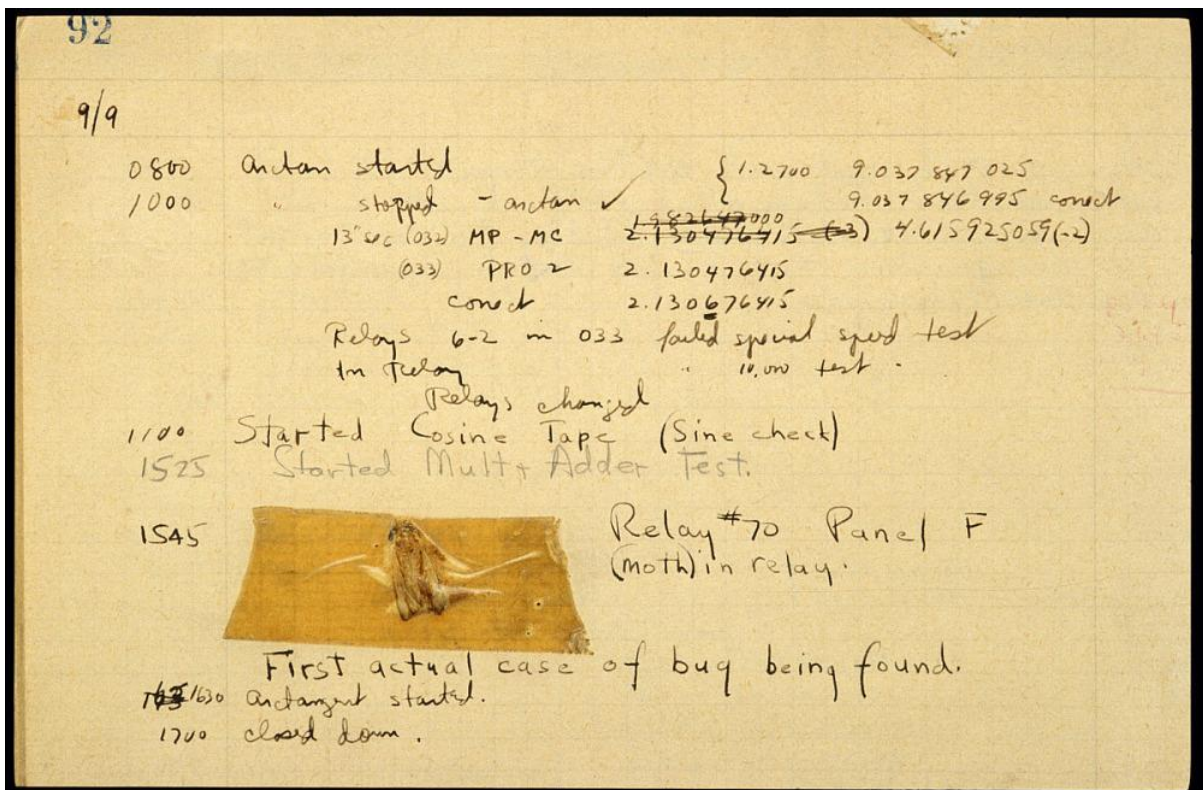 92
9/9
0800 antan started { 1.2700 9.037 847 025
1000 " stopped - antan ✓ 9.037 846 995 conect
13"sec (032) MP - MC 2.130476415 (-3) 4.615925059(-2)
(033) PRO 2 2.130476415
conect 2.130676415
Relays 6-2 in 033 failed special speed test
In Relay " 10,000 test .
Relays changed
1100 Started Cosine Tape (Sine check)
1525 Started Mult + Adder Test.
1545 Relay #70 Panel F
(moth) in relay.
First actual case of bug being found.
1630 antangent started.
1700 closed down .